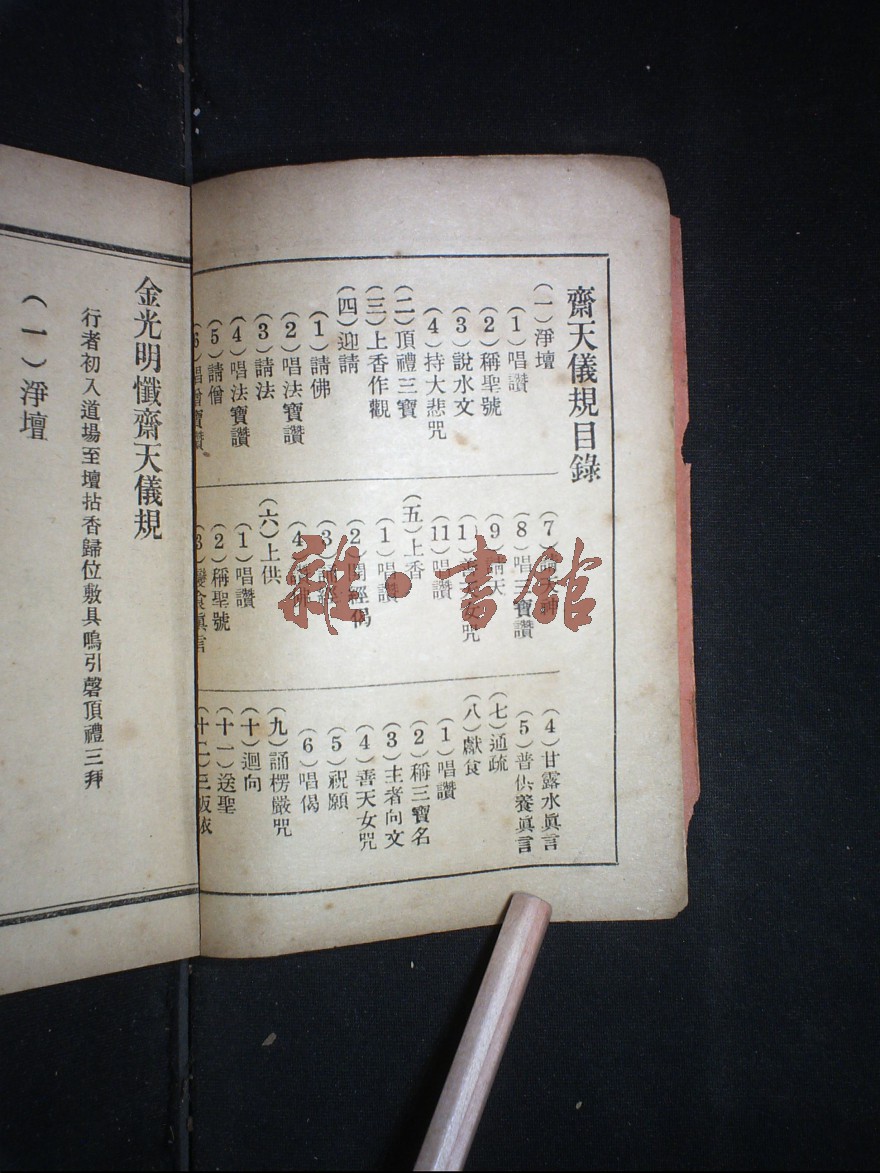 齋天儀規目錄
（一）淨壇
（1）唱讚
（2）稱聖號
（3）說水文
（4）持大悲咒
（二）頂禮三寶
（三）上香作觀
（四）迎請
（1）請佛
（2）唱法寶讚
（3）請法
（4）唱法寶讚
（5）請僧
（6）唱僧寶讚
（7）
（8）唱三寶讚
（9）請天
天女咒
（11）唱讚
（五）上香
（1）唱讚
（2）開經偈
（3）誦經
（4）
（六）上供
（1）唱讚
（2）稱聖號
（3）變食眞言
（4）甘露水眞言
（5）普供養眞言
（七）通疏
（八）獻食
（1）唱讚
（2）稱三寶名
（3）主者向文
（4）善天女咒
（5）祝願
（6）唱偈
（九）誦楞嚴咒
（十）迴向
（十一）送聖
（十二）三皈依
金光明懺齋天儀規
（一）淨壇
行者初入道場至壇拈香歸位敷具鳴引磬頂禮三拜
雜·書館